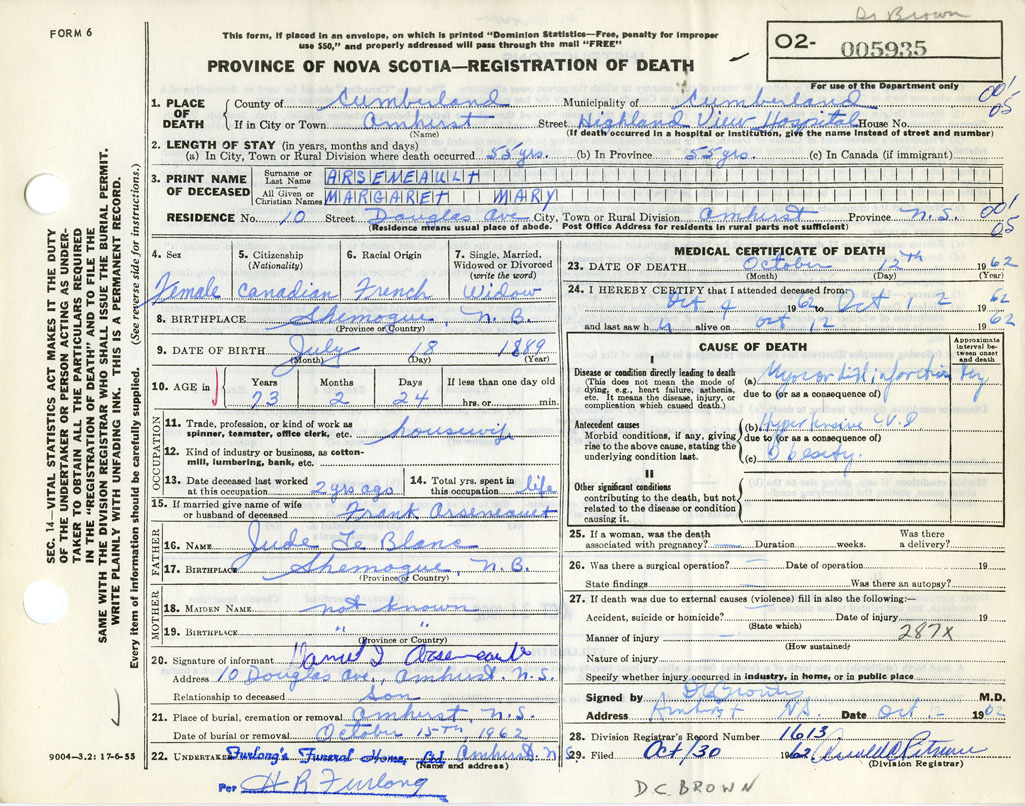 Dr Brown
FORM 6
This form, if placed in an envelope, on which is printed "Dominion Statistics—Free, penalty for improper
use $50," and properly addressed will pass through the mail "FREE"
02- 005935
PROVINCE OF NOVA SCOTIA—REGISTRATION OF DEATH
For use of the Department only
001
05
1. PLACE OF DEATH County of Cumberland Municipality of Cumberland
If in City or Town Amhurst Street Highland View Hospital House No.
(Name) (If death occurred in a hospital or institution, give the name instead of street and number)
2. LENGTH OF STAY (in years, months and days)
(a) In City, Town or Rural Division where death occurred 55 yrs. (b) In Province 55 yrs. (c) In Canada (if immigrant)
3. PRINT NAME OF DECEASED
Surname or Last Name ARSENEAULT
All Given or Christian Names MARGARET MARY
RESIDENCE No. 10 Street Douglas Ave City, Town or Rural Division Amhurst Province N.S. 001
05
(Residence means usual place of abode. Post Office Address for residents in rural parts not sufficient)
4. Sex 5. Citizenship (Nationality) 6. Racial Origin 7. Single, Married, Widowed or Divorced (write the word)
Female Canadian French Widow
8. BIRTHPLACE Shemogue, N.B.
(Province or Country)
9. DATE OF BIRTH July 18 1889
(Month) (Day) (Year)
10. AGE in Years Months Days If less than one day old
73 2 24 hrs. or min.
OCCUPATION
11. Trade, profession, or kind of work as
spinner, teamster, office clerk, etc. housewife
12. Kind of industry or business, as cotton-
mill, lumbering, bank, etc.
13. Date deceased last worked at this occupation 2 yrs ago 14. Total yrs. spent in this occupation life
15. If married give name of wife
or husband of deceased Frank Arseneault
FATHER
16. NAME Jude Le Blanc
17. BIRTHPLACE Shemogue, N.B.
(Province or Country)
MOTHER
18. MAIDEN NAME not known
19. BIRTHPLACE " "
(Province or Country)
20. Signature of informant Arseneault
Address 10 Douglas Ave., Amhurst N.S.
Relationship to deceased Son
21. Place of burial, cremation or removal Amhurst, N.S.
Date of burial or removal October 15th, 1962
22. UNDERTAKER Furlong's Funeral Home Ltd Amhurst N.S.
(Name and address)
Per H R Furlong
MEDICAL CERTIFICATE OF DEATH
23. DATE OF DEATH October 12th 1962
(Month) (Day) (Year)
24. I HEREBY CERTIFY that I attended deceased from
Oct 4 1962 to Oct 12 1962
and last saw h alive on Oct 12 1962
CAUSE OF DEATH
Approximate interval between onset and death
I
Disease or condition directly leading to death
(This does not mean the mode of dying, e.g., heart failure, asthenia, etc. It means the disease, injury, or complication which caused death.)
(a) Myocardial infarction
due to (or as a consequence of)
Antecedent causes
Morbid conditions, if any, giving rise to the above cause, stating the underlying condition last.
(b) Hypertensive C.V.D
due to (or as a consequence of)
(c) Obesity.
II
Other significant conditions
contributing to the death, but not related to the disease or condition causing it.
25. If a woman, was the death associated with pregnancy? — Duration weeks. Was there a delivery?
26. Was there a surgical operation? — Date of operation 19
State findings Was there an autopsy?
27. If death was due to external causes (violence) fill in also the following:—
Accident, suicide or homicide? Date of injury 19
(State which)
287X
Manner of injury —
(How sustained)
Nature of injury
Specify whether injury occurred in industry, in home, or in public place
Signed by DC Brown M.D.
Address Amhurst NS Date Oct 12 1962
28. Division Registrar's Record Number 1613
29. Filed Oct/30 1962
(Division Registrar)
D.C. BROWN
SEC. 14—VITAL STATISTICS ACT MAKES IT THE DUTY
OF THE UNDERTAKER OR PERSON ACTING AS UNDER-
TAKER TO OBTAIN ALL THE PARTICULARS REQUIRED
IN THE "REGISTRATION OF DEATH" AND TO FILE THE
SAME WITH THE DIVISION REGISTRAR WHO SHALL ISSUE THE BURIAL PERMIT.
WRITE PLAINLY WITH UNFADING INK. THIS IS A PERMANENT RECORD.
Every item of information should be carefully supplied. (See reverse side for instructions.)
9004—3.2: 17-6-55